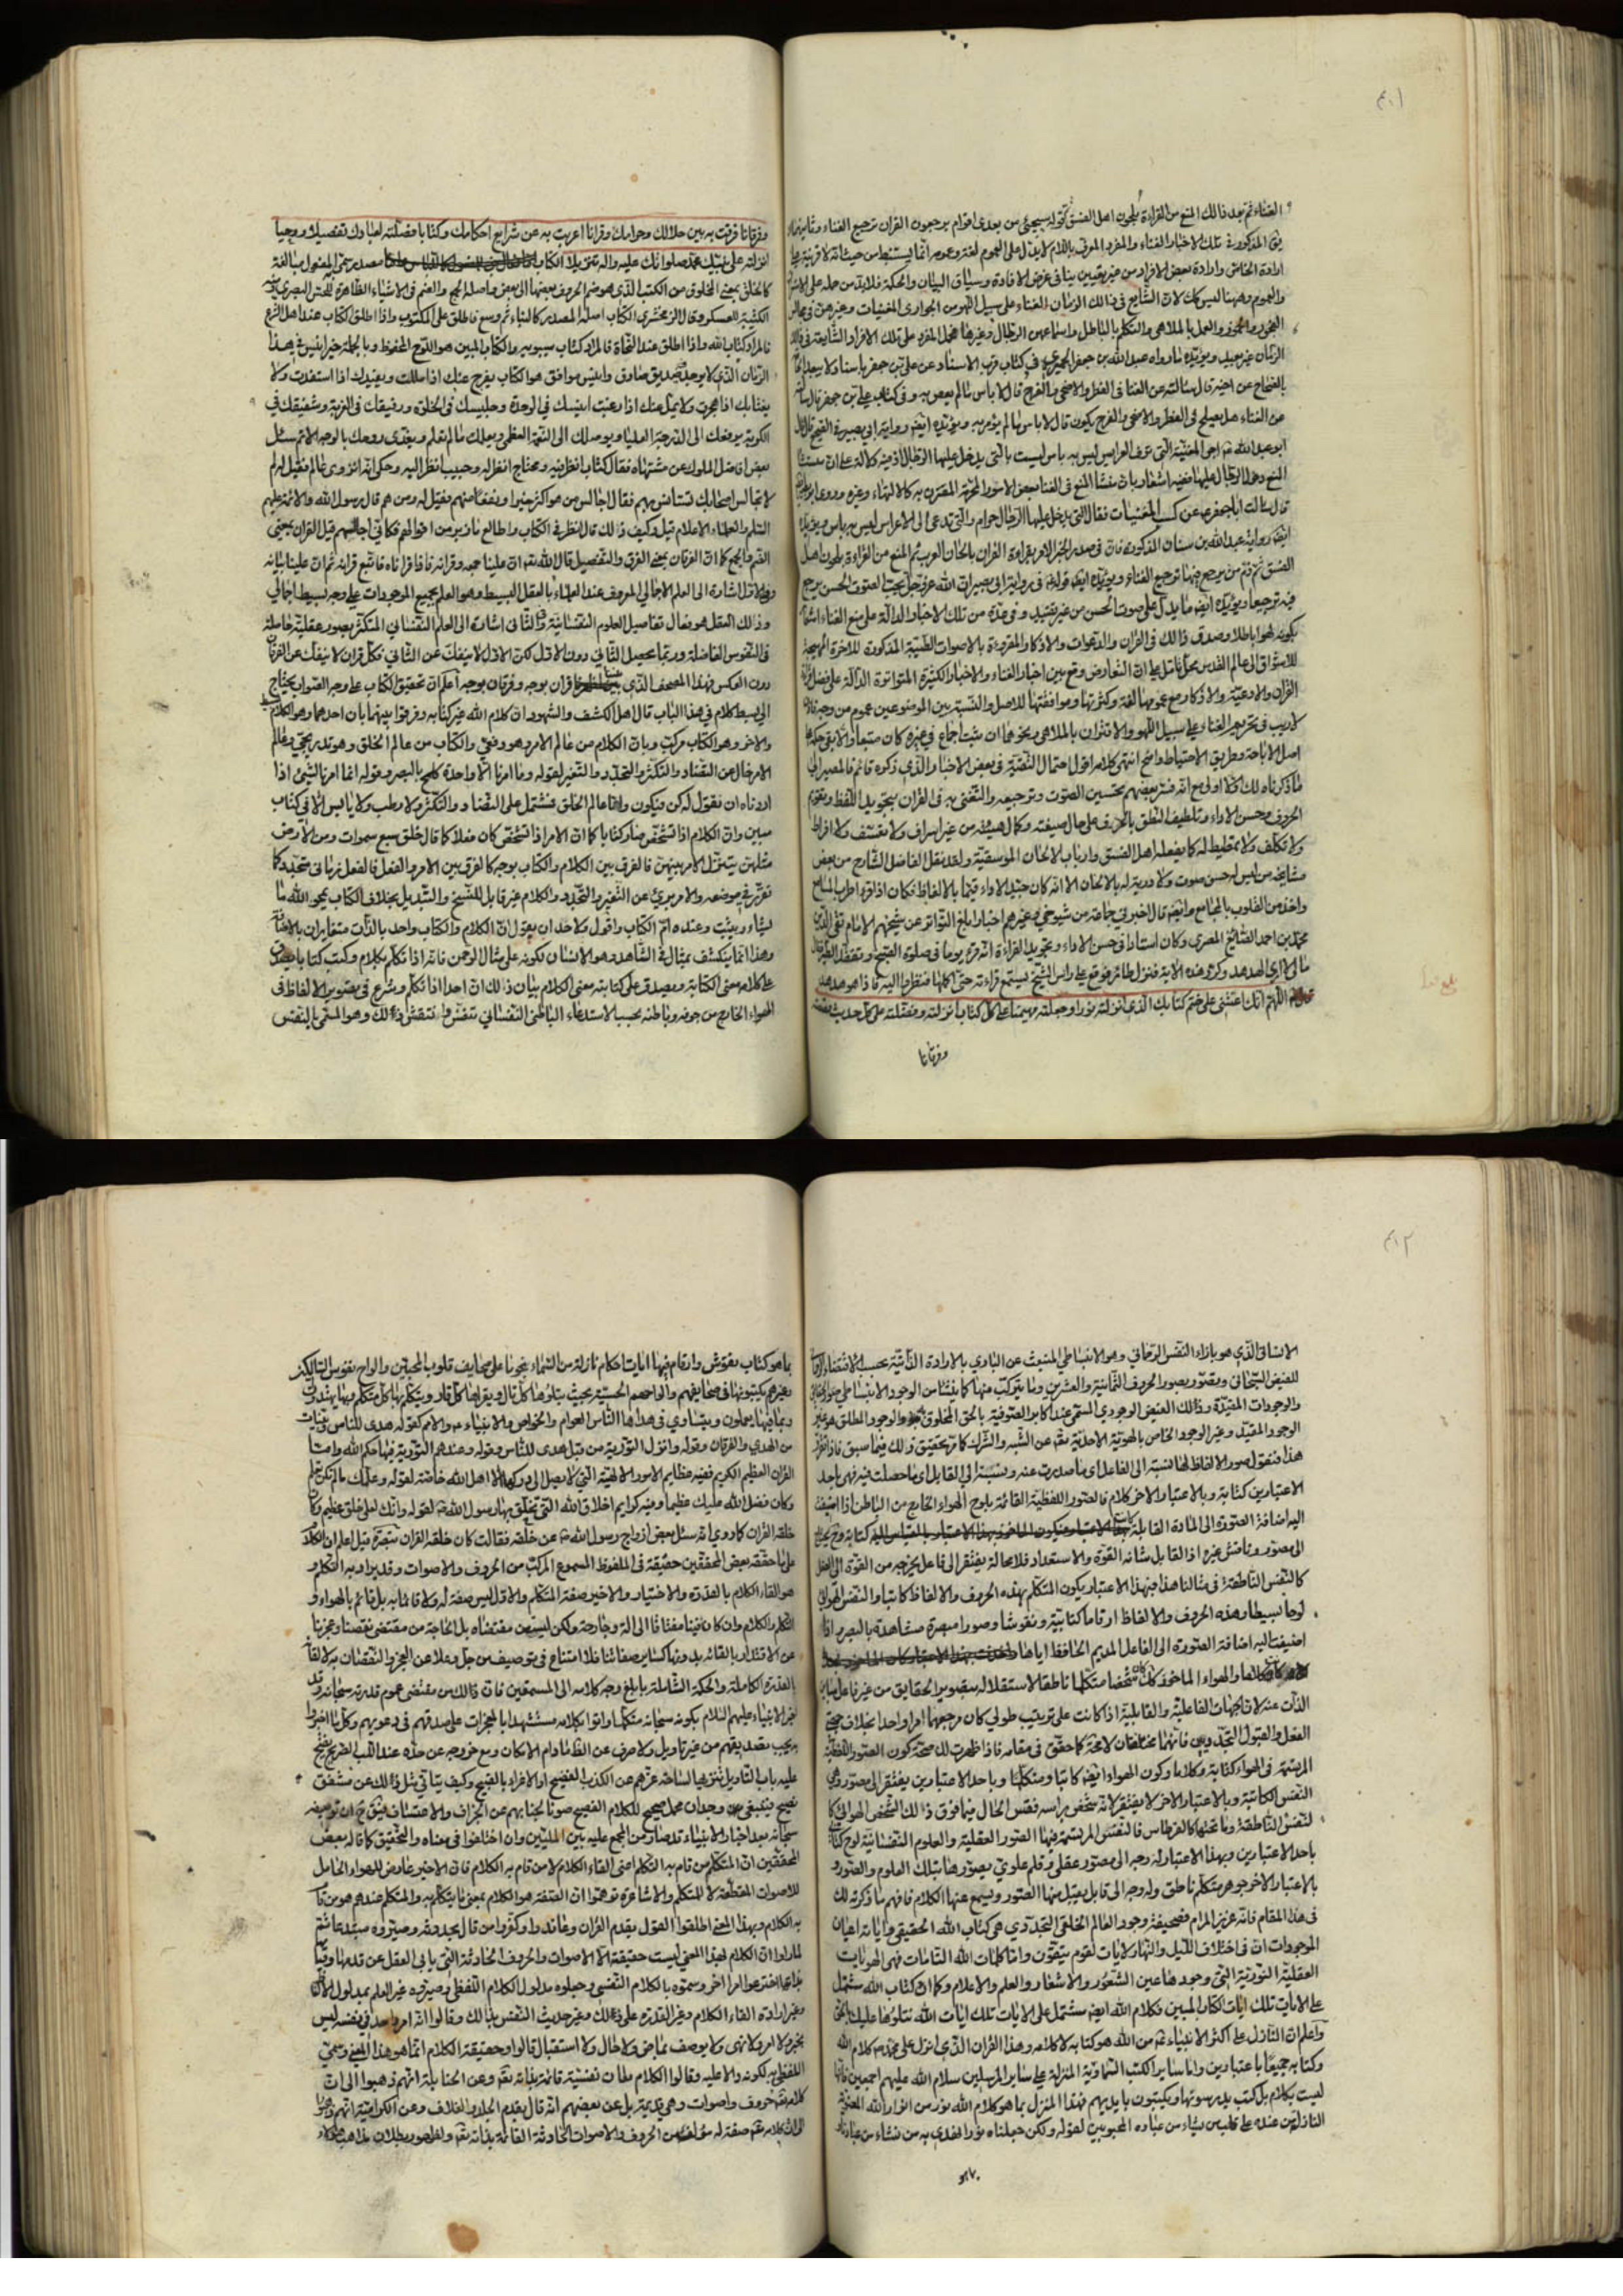 الغناء ثم بعد ذلك المنع من القراءة بلحون اهل الفسق كقوله سيجيئ من بعدي اقوام يرجعون القران ترجيع الغناء
في المذكورة تلك الاخبار الغناء والمفرد المعرف باللام لا يدل على العموم لغة وعمومه انما يستنبط من حيث انه لا قرينة على
ارادة الخاص وارادة بعض الافراد من غير تعيين ينافي غرض الافادة وسياق البيان والحكمة فلابد من حمله على
والعموم وههنا ليس كك لان الشايع في ذلك الزمان الغناء على سبيل اللهو من الجواري المغنيات وغيرهن في مجالس
الفجور والخمور والعمل بالملاهي والتكلم بالباطل واسماعهن الرجال وغيرها فحمل المفرد على تلك الافراد الشايعة في ذلك
الزمان غير بعيد ويؤيده ما رواه عبد الله بن جعفر الحميري في كتاب قرب الاسناد عن علي بن جعفر باسناد لا يبعد
بالصحاح عن اخيه قال سألته عن الغنا في الفطر والاضحى والفرح قال لا باس ما لم يعص به وفي كتاب علي بن جعفر قال سألته
عن الغناء هل يصلح في الفطر والاضحى والفرح يكون قال لا باس ما لم يؤمر به ويؤيده ايضا رواية ابي بصير في الصحيح قال قال
ابو عبد الله اجر المغنية التي تزف العرايس ليس به باس ليست بالتي يدخل عليها الرجال
المنع دخول الرجال عليها ففيه اشعار بان منشأ المنع في الغنا بعض الامور المحرمة المقترن به كالالتهاء وغيره وروى ابو بصير
قال سالت ابا جعفر عن كسب المغنيات فقال التي يدخل عليها الرجال حرام والتي تدعى الى الاعراس ليس به باس ويؤيده
ايضا رواية عبد الله بن سنان المذكورة فان في صدر الخبر الامر بقراءة القران بالحان العرب ثم المنع من القراءة بلحون اهل
الفسق ثم ذم من يرجع فيها ترجيع الغناء ويؤيده ايضا قوله في رواية ابي بصير ان الله عز وجل يحب الصوت الحسن يرجع
فيه ترجيعا ويؤيده ايضا ما يدل على صوت الحسن من غير تقييد وفي عدة من تلك الاخبار الدالة على منع الغناء اشعار
بكونه لهوا باطلا وصدق ذلك في القران والدعوات والاذكار المقروءة بالاصوات الطيبة المذكورة للاخرة المهيجة
للاشواق الى عالم القدس محل تامل على ان التعارض وقع بين اخبار الغناء والاخبار الكثيرة المتواترة الدالة على فضل قراءة
القران والادعية والاذكار مع عمومها لغة وكثرتها وموافقتها للاصل والنسبة بين الموضوعين عموم من وجه فاذن
لا ريب في تحريم الغناء على سبيل اللهو والاقتران بالملاهي ونحوهما ان ثبت اجماع في غيره كان متبعا والا بقي حكمه على
اصل الاباحة وطريق الاحتياط واضح انتهى كلامه اقول احتمال التقية في بعض الاخبار والذي ذكره قائم فالمصير الى
ما ذكرناه لك اولا اولى مع انه فسر بعضهم تحسين الصوت وترجيعه والتغني به في القران بتجويد اللفظ وتقويم
الحروف وحسن الاداء وتلطيف النطق بالحرف على حال صيغته وكمال هيئته من غير اسراف ولا تعسف ولا افراط
ولا تكلف ولا تمطيط له كما يفعله اهل الفسق وارباب الالحان الموسيقية ولقد نقل الفاضل الشارح من بعض
مشايخه من ليس له حسن صوت ولا دربة له بالالحان الا انه كان جيد الاداء قيما بالالفاظ فكان اذا قرا اطرب المسامع
واخذ من القلوب بالمجامع وايضا قال اخبرني جماعة من شيوخي وغيرهم اخبارا بلغ التواتر عن شيخهم الامام تقي الدين
محمد بن احمد الصائغ المصري وكان استاذا في حسن الاداء وتجويد القراءة انه قرء يوما في صلوة الصبح وتفقد الطير فقال
مالي لا ارى الهدهد وكرر هذه الاية فنزل طائر فوقع على راس الشيخ يستمع قراءته حتى اكملها فنظروا اليه فاذا هو هدهد
اللهم انك اعنتني على ختم كتابك الذي انزلته نورا وجعلته مهيمنا على كل كتاب انزلته وفضلته على كل حديث قصصته
وفرقانا
وفرقانا فرقت به بين حلالك وحرامك وقرانا اعربت به عن شرايع احكامك وكتابا فصلته لعبادك تفصيلا ووحيا
انزلته على نبيك محمد صلواتك عليه واله تنزيلا الكتاب مصدر سمي به المفعول مبالغة
كالخلق بمعنى المخلوق من الكتب الذي هو ضم الحروف بعضها الى بعض واصله الجمع والضم في الاشياء الظاهرة للحس البصري ومنه
الكتيبة للعسكر وقال الزمخشري الكتاب اصله المصدر كالبناء ثم وسع فاطلق على المكتوب واذا اطلق الكتاب عند اهل الشرع
فالمراد كتاب الله واذا اطلق عند النحاة فالمراد كتاب سيبويه والكتاب المبين هو اللوح المحفوظ وبالجملة خير انيس في هذا
الزمان الذي لا يوجد فيه صديق صادق وانيس موافق هو الكتاب يفرج عنك اذا مللت ويفيدك اذا استفدت ولا
يغتابك اذا هجرت ولا يمل عنك اذا رغبت انيسك في الوحدة وجليسك في الخلوة ورفيقك في الغربة وشفيقك في
الكربة يرفعك الى الدرجة العليا ويوصلك الى النعمة العظمى ويعلمك ما لم تعلم ويغذي روحك بالوجه الاتم سئل
بعض افاضل الملوك عن مشتهاه فقال كتاب انظر فيه ومحتاج انظر له وحبيب انظر اليه وحكي انه انزوى عالم فقيل له لم
لا تجالس اصحابك تستانس بهم فقال اجالس من هو اكثر خيرا ونفعا منهم فقيل له ومن هم قال رسول الله والائمة عليهم
السلم والعلماء الاعلام قيل وكيف ذلك قال انظر في الكتاب واطالع ما زبر من اقوالهم فكاني اجالسهم قيل القران بمعنى
الضم والجمع كما ان الفرقان بمعنى الفرق والتفصيل قال الله تعالى ان علينا جمعه وقرانه فاذا قراناه فاتبع قرانه ثم ان علينا بيانه
ففي الاول اشارة الى العلم الاجمالي المعروف عند العلماء بالعقل البسيط وهو العلم بجميع الموجودات على وجه بسيط اجمالي
وذلك العقل هو فعال تفاصيل العلوم النفسانية وفي الثاني اشارة الى العلم النفساني المتكثر بصور عقلية حاصلة
في النفوس الفاضلة وربما يحصل الثاني دون الاول لكن الاول لا ينفك عن الثاني فكل قران لا ينفك عن الفرقان
دون العكس فهذا المصحف الذي بين اظهرنا قران بوجه وفرقان بوجه اعلم ان تحقيق الكتاب على وجه الصواب يحتاج
الى بسط كلام في هذا الباب قال اهل الكشف والشهود ان كلام الله غير كتابه وفرقوا بينهما بان احدهما وهو الكلام بسيط
والاخر وهو الكتاب مركب وبان الكلام من عالم الامر وهو دفعي والكتاب من عالم الخلق وهو تدريجي وعالم
الامر خال عن التضاد والتكثر والتجدد والتغير لقوله وما امرنا الا واحدة كلمح بالبصر وقوله انما امرنا لشيء اذا
اردناه ان نقول له كن فيكون واما عالم الخلق فمشتمل على التضاد والتكثر ولا رطب ولا يابس الا في كتاب
مبين وان الكلام اذا تشخص صار كتابا كما ان الامر اذا تشخص كان فعلا كما قال خلق سبع سموات ومن الارض
مثلهن يتنزل الامر بينهن فالفرق بين الكلام والكتاب بوجه كالفرق بين الامر والفعل فالفعل زماني متجدد كما
تقرر في موضعه والامر بريء عن التغير والتجدد والكلام غير قابل للنسخ والتبديل بخلاف الكتاب يمحو الله ما
يشاء ويثبت وعنده ام الكتاب واقول ولاحد ان يقول ان الكلام والكتاب واحد بالذات متغايران بالاعتبار
وهذا انما ينكشف بمثال في الشاهد وهو الانسان لكونه على مثال الرحمن فانه اذا تكلم بكلام وكتب كتابا يصدق
على كلامه معنى الكتابة ويصدق على كتابته معنى الكلام بيان ذلك ان احدا اذا تكلم وشرع في تصوير الالفاظ في
الهواء الخارج من جوفه وباطنه بحسب الاستدعاء الباطني النفساني تنفس وانتقش ذلك وهو المسمى بالنفس
الانساني الذي هو بازاء النفس الرحماني وهو الانبساطي المنبعث عن الباري بالارادة الذاتية بحسب الاقتضاء
للفيض السبحاني وتصور بصور الحروف الثمانية والعشرين وما يتركب منها كما ينشأ من الوجود الانبساطي صور
والوجودات المقيدة وذلك الفيض الوجودي المسمى عند اكابر الصوفية بالحق المخلوق به والوجود المطلق هو غير
الوجود المقيد وغير الوجود الخاص بالهوية الاحدية تعالى عن الشبه والشرك كما مر تحقيق ذلك فيما سبق فاذا تقرر
هذا فنقول صور الالفاظ لها نسبة الى الفاعل اي ما صدرت عنه ونسبة الى القابل اي ما حصلت فيه فهي باحد
الاعتبارين كتابة وبالاعتبار الاخر كلام فالصور اللفظية القائمة بلوح الهواء الخارج من الباطن اذا اضيفت
اليه اضافة الصورة الى المادة القابلة كتابة وح يحتاج
الى مصور وناقش غيره اذ القابل شانه القوة والاستعداد فلا محالة يفتقر الى فاعل يخرجه من القوة الى الفعل
كالنفس الناطقة في مثالنا هذا فبهذا الاعتبار يكون المتكلم بهذه الحروف والالفاظ كاتبا والنفس الهوائي
لوحا بسيطا وهذه الحروف والالفاظ ارقاما كتابية ونقوشا وصورا مبصرة مشاهدة بالبصر واذا
اضيفت اليه اضافة الصورة الى الفاعل المديم الحافظ اياها
كلاما والهواء الماخوذ كك شخصا متكلما ناطقا لاستقلاله بتصوير الحقايق من غير فاعل مباين
الذات عنه لان الجهات الفاعلية والقابلية اذا كانت على ترتيب طولي كان مرجعهما امرا واحدا بخلاف جهتي
الفعل والقبول التجددين فانهما مختلفان لا محة كما حقق في مقامه فاذا ظهرت لك صحة كون الصور اللفظية
المرتسمة في الهواء كتابة وكلاما وكون الهواء ايضا كاتبا ومتكلما وباحد الاعتبارين يفتقر الى مصور وهي
النفس الكاتبة وبالاعتبار الاخر لا يفتقر لانه شخص براسه فقس الحال فيما فوق ذلك الشخص الهوائي كا
لنفس الناطقة وما تحتها كالقرطاس فالنفس المرتسمة فيها الصور العقلية والعلوم النفسانية لوح كتابي
باحد الاعتبارين وبهذا الاعتبار له وجه الى مصور عقلي وقلم علوي يصورها بتلك العلوم والصور و
بالاعتبار الاخر جوهر متكلم ناطق وله وجه الى قابل يقبل منها الصور ويسمع عنها الكلام فافهم ما ذكرته لك
في هذا المقام فانه عزيز المرام فصحيفة وجود العالم الخلقي التجددي هي كتاب الله الحقيقي واياته اعيان
الموجودات ان في اختلاف الليل والنهار لايات لقوم يتقون واما كلمات الله التامات فهي الهويات
العقلية النورية التي وجودها عين الشعور والاشعار والعلم والاعلام وكما ان كتاب الله مشتمل
على الايات تلك ايات الكتاب المبين فكلام الله ايضا مشتمل على الايات تلك ايات الله نتلوها عليك بالحق
واعلم ان النازل على اكثر الانبياء من الله هو كتابه لا كلامه وهذا القران الذي انزل على محمد كلام الله
وكتابه جميعا باعتبارين واما ساير الكتب السماوية المنزلة على ساير المرسلين سلام الله عليهم اجمعين فانها
ليست بكلام بل كتب يدرسونها ويكتبون بايديهم فهذا المنزل بما هو كلام الله نور من انوار الله المعنوية
النازل من عنده على قلب من يشاء من عباده المحبوبين لقوله ولكن جعلناه نورا نهدي به من نشاء من عبادنا
بما هو
بما هو كتاب نقوش وارقام فيها ايات احكام نازلة من السماء نجوما على صحايف قلوب المحبين والواح نفوس السالكين
وغيرهم يكتبونها في صحايفهم والواحهم الحسية بحيث يتلوها كل تال ويقراها كل قار ويتكلم بها كل متكلم وبها يهتدون
وبما فيها يعملون ويتساوى في هداها الناس العوام والخواص والانبياء والامم كقوله هدى للناس وبينات
من الهدى والفرقان وقوله وانزل التورية من قبل هدى للناس وقوله وعندهم التورية فيها حكم الله واما
القران العظيم الكريم ففيه عظايم الامور الالهية التي لا يصل الى دركها الا اهل الله خاصة لقوله وعلمك ما لم تكن تعلم
وكان فضل الله عليك عظيما وفيه كرايم اخلاق الله التي تخلق بها رسول الله لقوله وانك لعلى خلق عظيم وكان
خلقه القران كما روي انه سئل بعض ازواج رسول الله عن خلقه فقالت كان خلقه القران تبصرة قيل اعلم ان الكلام
على ما حققه بعض المحققين حقيقة في الملفوظ المسموع المركب من الحروف والاصوات وقد يراد به التكلم و
هو القاء الكلام بالقدرة والاختيار والاخير صفة المتكلم والاول ليس صفة له ولا قائما به بل قائم بالهواء و
التكلم والكلام وان كان فينا مفتاقا الى الة وجارحة ولكن ليس من مقتضاه بل الحاجة من مقتضى نقصنا وعجزنا
عن الاقتدار بالقائه بدونها كساير صفاتنا فلا امتناع في توصيف من جل وعلا عن العجز والنقصان به لالقائه
بالقدرة الكاملة والحكمة الشاملة بابلغ وجه كلامه الى المستمعين فان ذلك من مقتضى عموم قدرته سبحانه وقد
اخبر الانبياء عليهم السلام بكونه سبحانه متكلما واتوا بكلامه مستشهدا بالمعجزات على صدقهم في دعويهم وكل ما اخبروا
به يجب تصديقهم من غير تاويل ولا صرف عن الظ ما دام الامكان ومع خروجه عن حده عند اللب الصريح ينفتح
عليه باب التاويل تنزيها لساحة عزهم عن الكذب الفضيح او الاغراء بالقبيح وكيف يتاتى مثل ذلك عن مشفق
نصيح فينبغي وجدان محمل صحيح للكلام الفصيح صونا لجنابهم عن الجزاف والاعتساف فتبين ح ان توصيفه
سبحانه بعد اخبار الانبياء قد صار من المجمع عليه بين المليين وان اختلفوا في معناه والتحقيق كما قاله بعض
المحققين ان المتكلم من قام به التكلم اعني القاء الكلام لا من قام به الكلام فان الاخير عارض للهواء الحامل
للاصوات المقطعة لا للمتكلم والاشاعرة توهموا ان الصفة هو الكلام بمعنى ما يتكلم به والمتكلم عندهم هو من قام
به الكلام وبهذا المعنى اطلقوا القول بقدم القران وعاندوا وكفروا من قال بحدوثه وصيروه مبتدعا ثم
لما راوا ان الكلام بهذا المعنى ليست حقيقة الا الاصوات والحروف الحادثة التي يابى العقل عن قدمها وقيامها
بذاته اخترعوا امرا اخر وسموه بالكلام النفسي وجعلوه مدلول الكلام اللفظي وصيروه غير العلم بمدلول الالفاظ
وغير ارادة القاء الكلام وغير القدرة على ذلك وغير حديث النفس بذلك وقالوا انه امر واحد في نفسه ليس
بخبر ولا امر ولا نهي ولا يوصف بماض ولا حال ولا استقبال قالوا وحقيقة الكلام انما هو هذا المعنى وسمي
اللفظي به لكونه دالا عليه وقالوا الكلام نفسية قائمة بذاته تعالى وعن الحنابلة انهم ذهبوا الى ان
كلامه تعالى حروف واصوات وهي قديمة بل عن بعضهم انه قال بقدم الجلد والغلاف وعن الكرامية انهم ذهبوا
الى ان كلامه تعالى صفة له مؤلفة من الحروف والاصوات الحادثة القائمة بذاته تعالى ولظهور بطلان